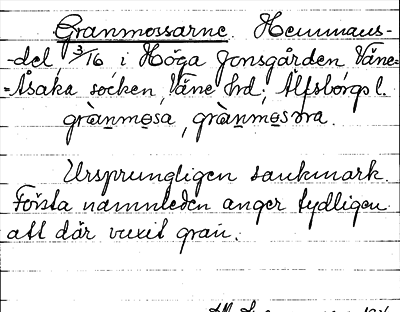 Granmossarne. Hemmans-
-del, 3/16 i Höga Jonsgården Väne-
-Åsaka socken, Väne hrd, Älfsborgs l.
grànmosa, grànmosora.
Ursprungligen sankmark.
Första namnleden anger tydligen
att där vuxit gran.